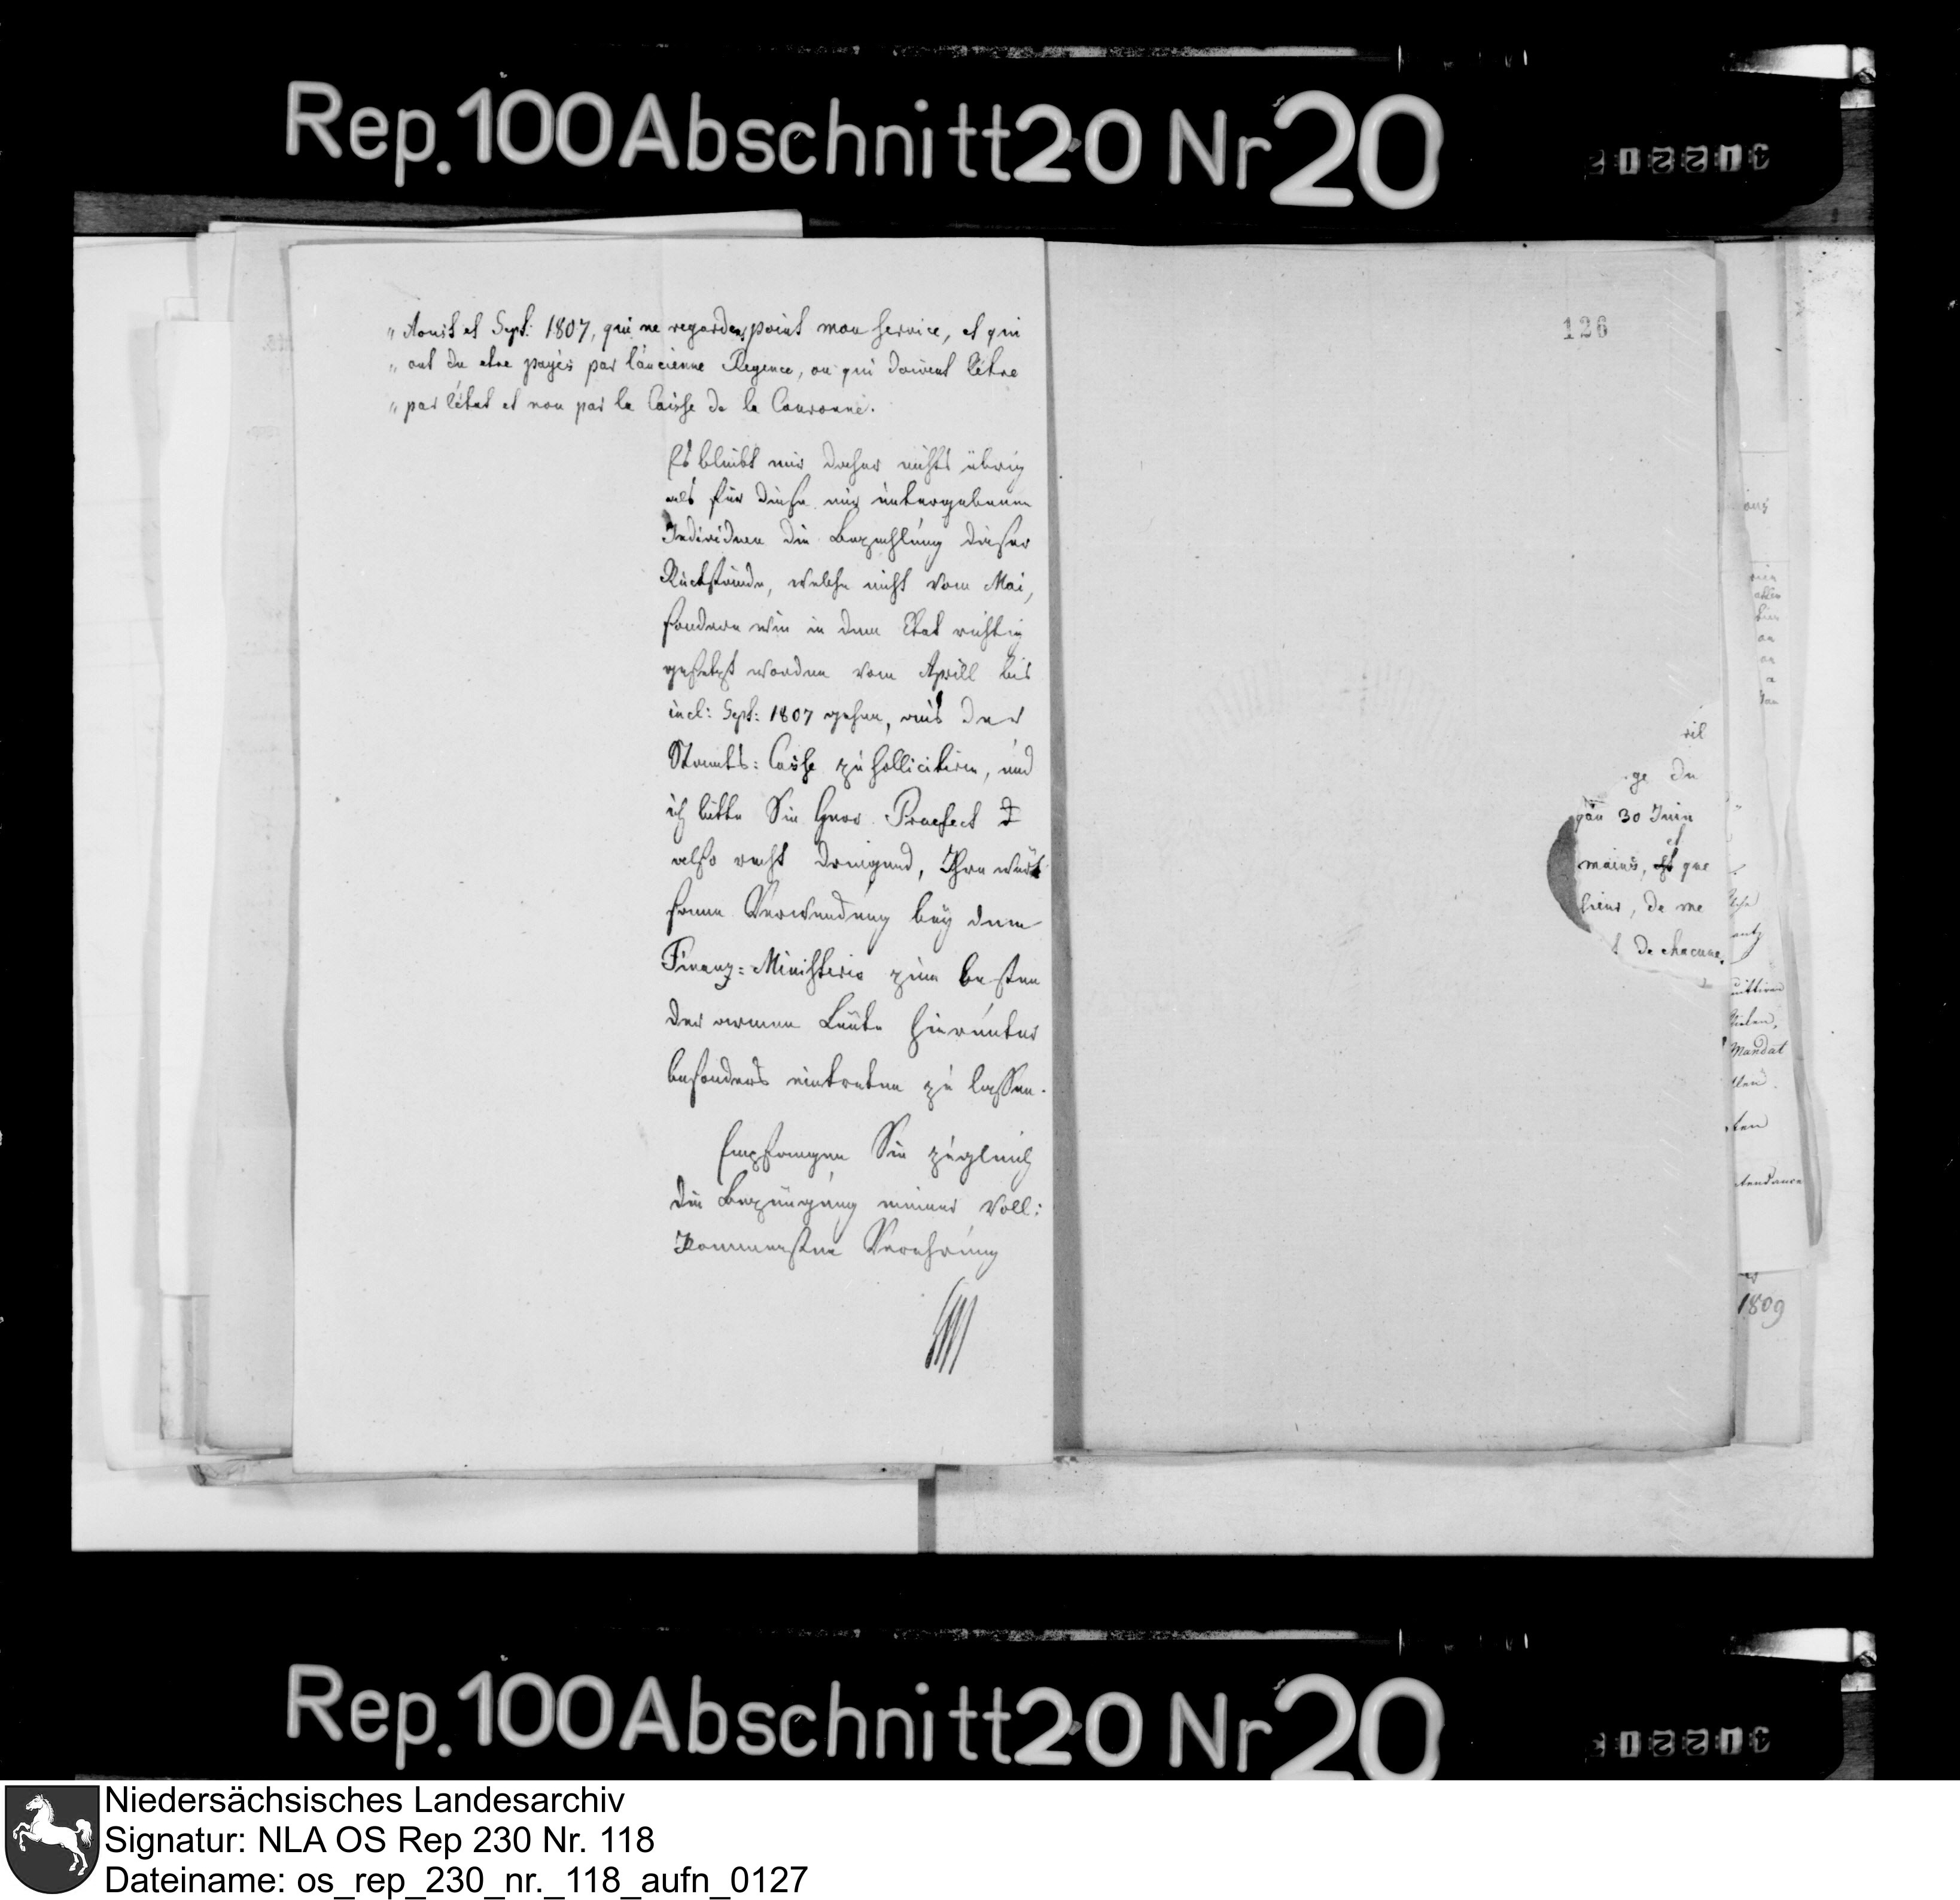 Rep. 100 Abschnitt 20 Nr 20
„ Aoust et Sept: 1807, qui ne regardent point mon service, et qui
„ ont du etre payés par l'ancienne Regence, ou qui doivent l'être
„ par l'état et non par la Caisse de la Couronne.
Es bleibt mir daher nichts übrig
als für diese mir untergebenen
Individuen die Bezahlung dieser
Rückstände, welche nicht vom Mai,
sondern wie in dem Etat richtig
gesetzt worden vom Aprill bis
incl: Sept: 1807 gehen, aus der
Staats: Casse zu sollicitiren, und
ich bitte Sie Herr Praefect
also recht dringend, Ihre würk
same Verwendung bey dem
Finanz: Ministerio zum besten
der armen Leute hierunter
besonders eintreten zu lassen.
Empfangen Sie zugleich
die Bezeugung meiner Voll:
kommensten Verehrung
126
ril
ge du
qu'au 30 Juin
mains, et que
sieur, de me
t de chacune.
Mandat
tendance
1809
Rep. 100 Abschnitt 20 Nr 20
Niedersächsisches Landesarchiv
Signatur: NLA OS Rep 230 Nr. 118
Dateiname: os_rep_230_nr._118_aufn_0127